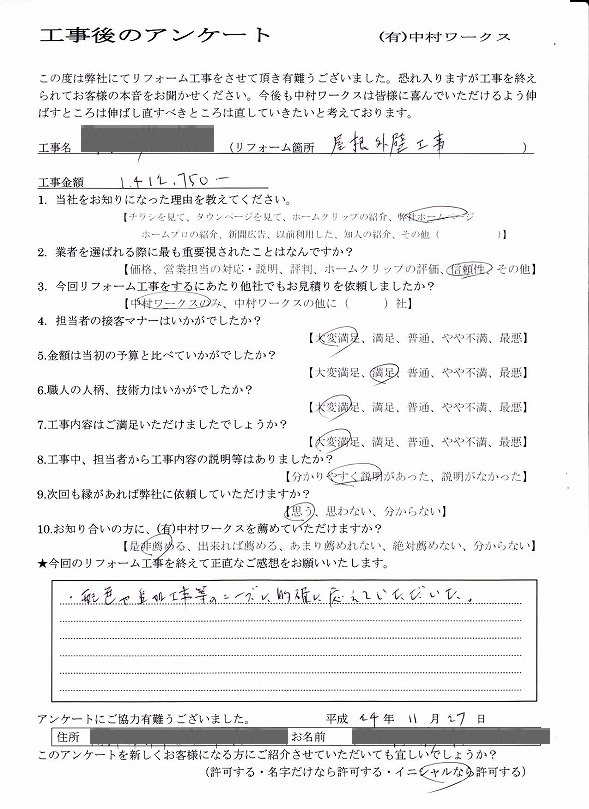 工事後のアンケート (有)中村ワークス
この度は弊社にてリフォーム工事をさせて頂き有難うございました。恐れ入りますが工事を終え
られてお客様の本音をお聞かせください。今後も中村ワークスは皆様に喜んでいただけるよう伸
ばすところは伸ばし直すべきところは直していきたいと考えております。
工事名 (リフォーム箇所 屋根外壁工事 )
工事金額 1,412,750-
1. 当社をお知りになった理由を教えてください。
【チラシを見て、タウンページを見て、ホームクリップの紹介、弊社ホームページ
ホームプロの紹介、新聞広告、以前利用した、知人の紹介、その他( )】
2. 業者を選ばれる際に最も重要視されたことはなんですか?
【価格、営業担当の対応・説明、評判、ホームクリップの評価、信頼性、その他】
3. 今回リフォーム工事をするにあたり他社でもお見積りを依頼しましたか?
【中村ワークスのみ、中村ワークスの他に( )社】
4. 担当者の接客マナーはいかがでしたか?
【大変満足、満足、普通、やや不満、最悪】
5.金額は当初の予算と比べていかがでしたか?
【大変満足、満足、普通、やや不満、最悪】
6.職人の人柄、技術力はいかがでしたか?
【大変満足、満足、普通、やや不満、最悪】
7.工事内容はご満足いただけましたでしょうか?
【大変満足、満足、普通、やや不満、最悪】
8.工事中、担当者から工事内容の説明等はありましたか?
【分かりやすく説明があった、説明がなかった】
9.次回も縁があれば弊社に依頼していただけますか?
【思う、思わない、分からない】
10.お知り合いの方に、(有)中村ワークスを薦めていただけますか?
【是非薦める、出来れば薦める、あまり薦めれない、絶対薦めない、分からない】
★今回のリフォーム工事を終えて正直なご感想をお願いいたします。
・配色や追加工事等のニーズに的確に応えていただいた。
アンケートにご協力有難うございました。 平成 24 年 11 月 27 日
住所 お名前
このアンケートを新しくお客様になる方にご紹介させていただいても宜しいでしょうか?
(許可する・名字だけなら許可する・イニシャルなら許可する)